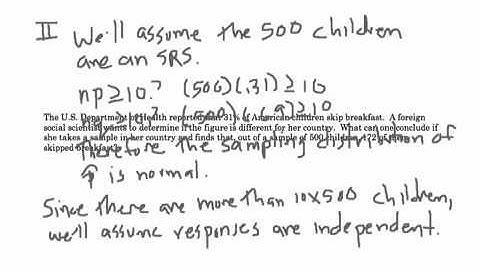 II We'll assume the 500 children
are an SRS.
np ≥ 10? (500)(.31) ≥ 10
nq ≥ 10? (500)(.69) ≥ 10
The U.S. Department of Health reported that 31% of American children skip breakfast. A foreign
social scientist wants to determine if the figure is different for her country. What can one conclude if
she takes a sample in her country and finds that, out of a sample of 500 children, 172 of them
skipped breakfast?
Therefore the sampling distribution of
p̂ is normal.
Since there are more than 10x500 children,
we'll assume responses are independent.